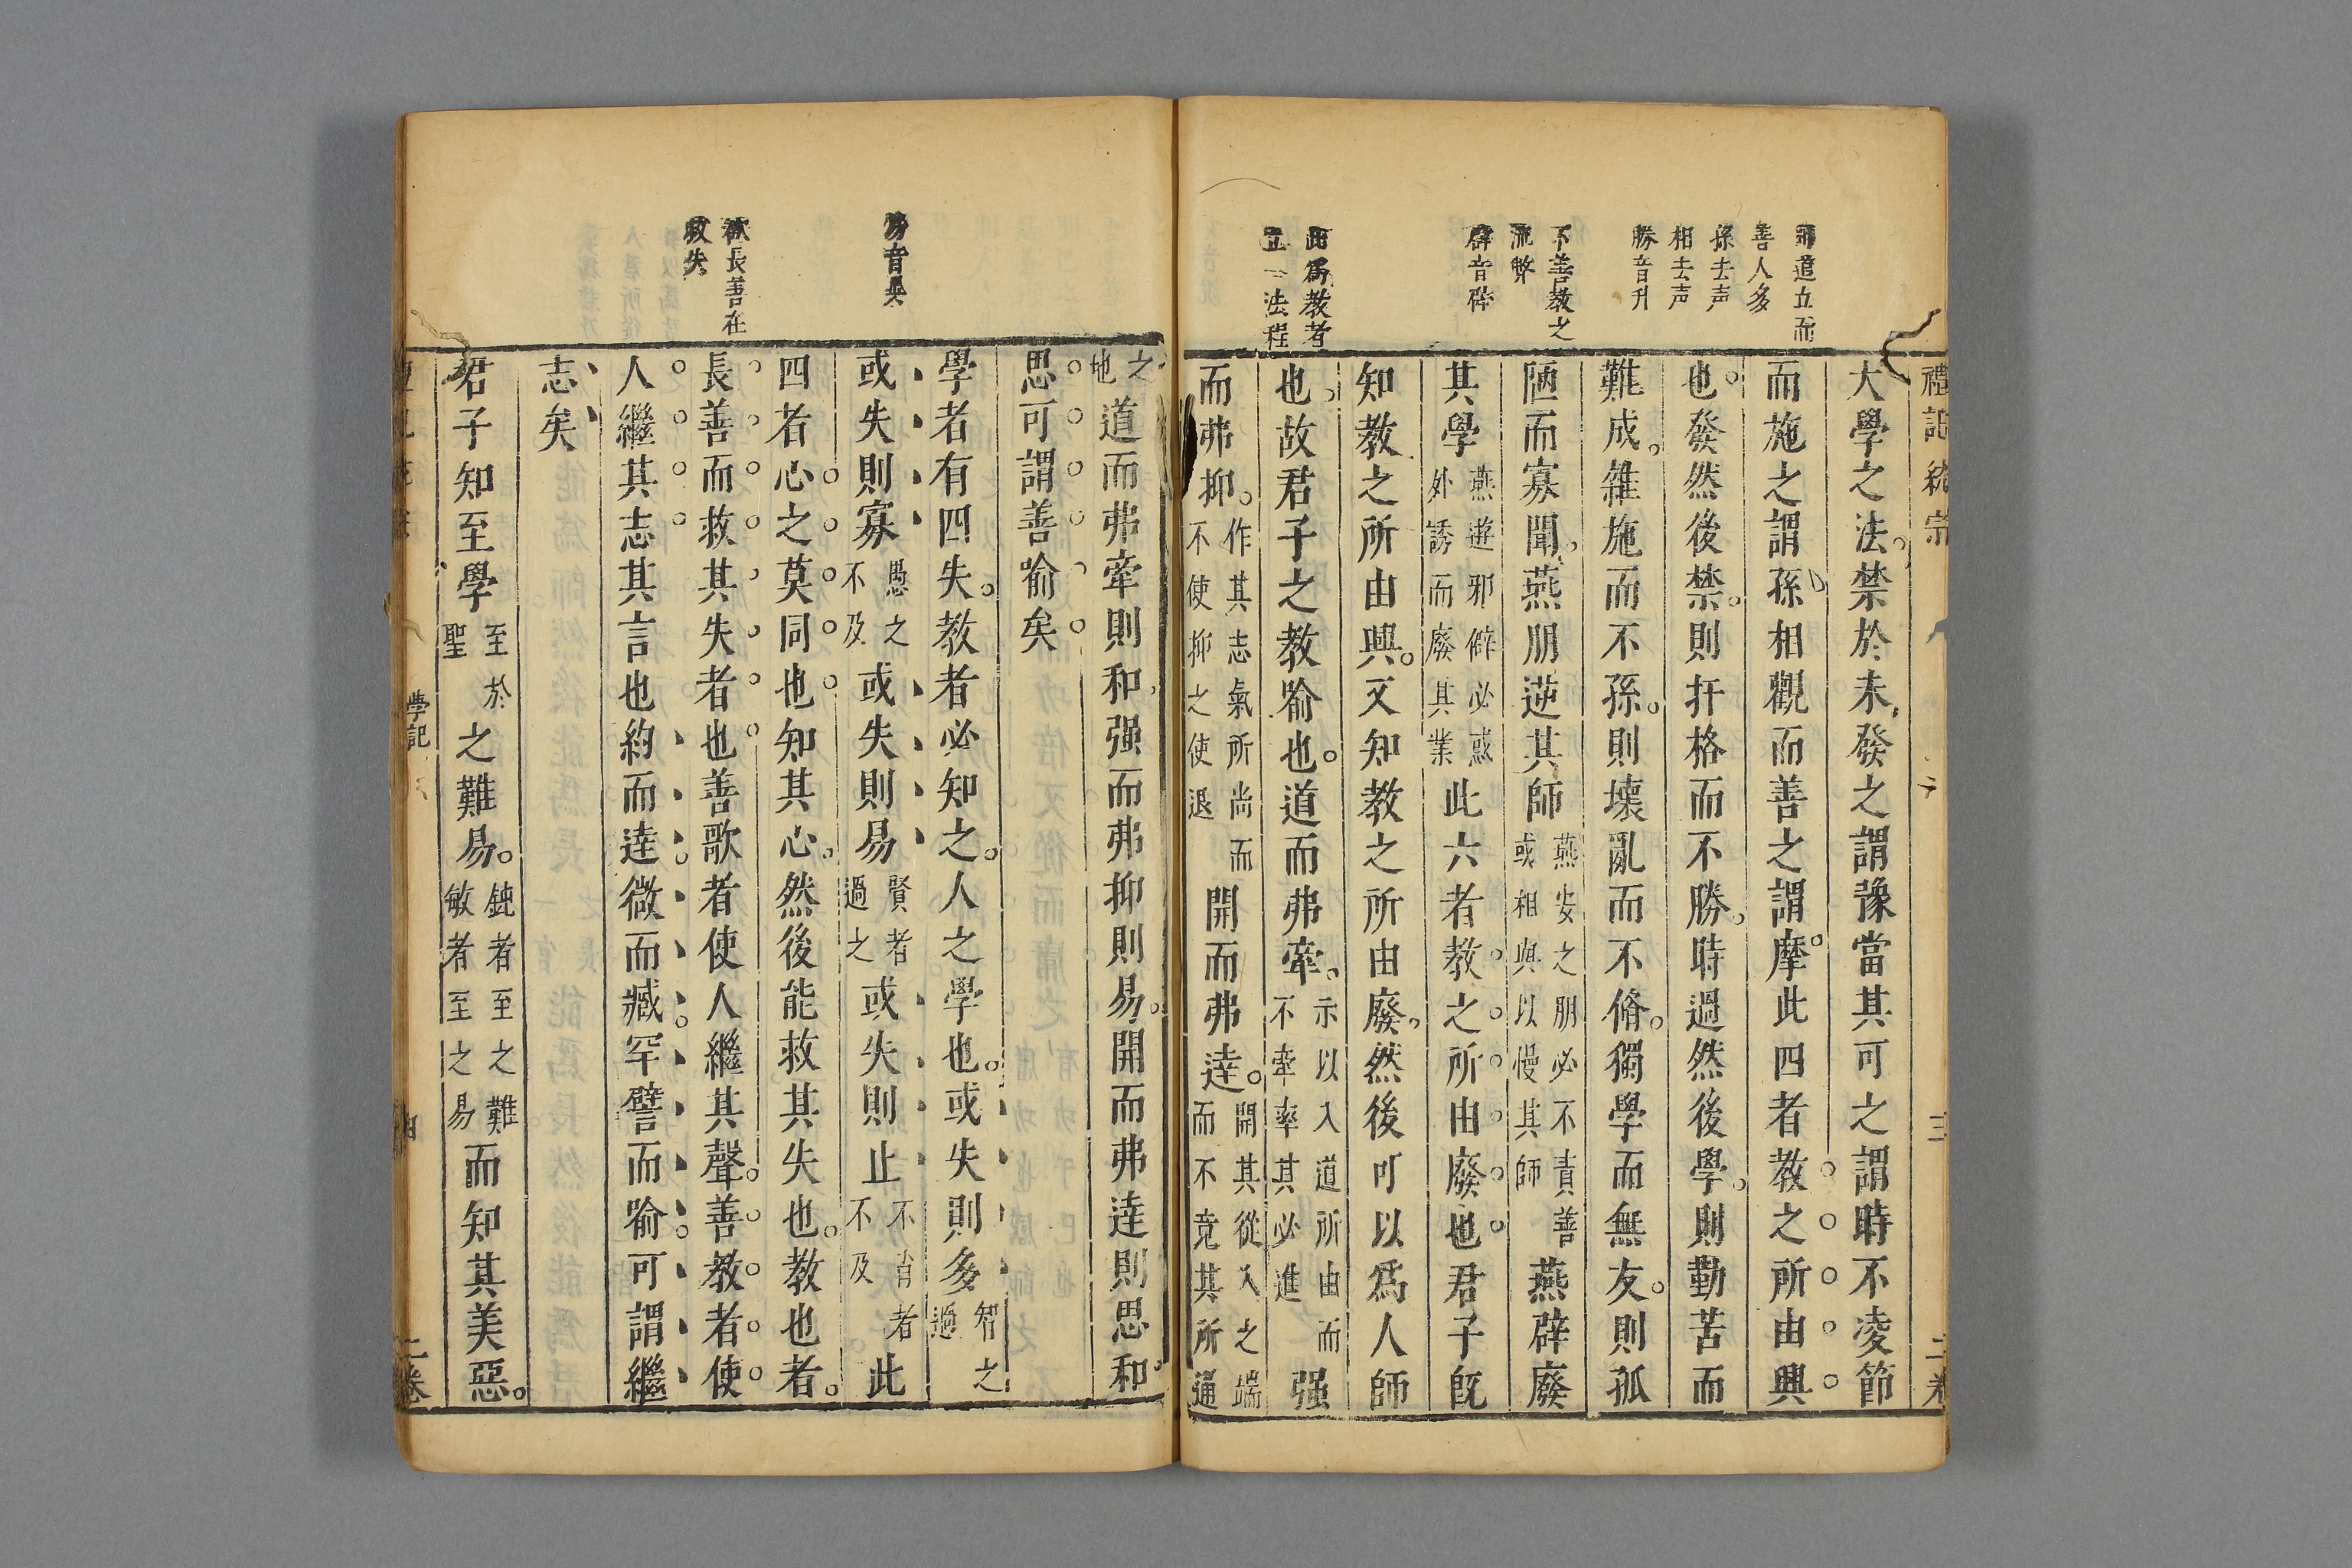 師道立而
善人多
孫去声
相去声
勝音升
不善教之
流弊
辟音僻
由爲教者
立一法程
禮記統宗
大學之法。禁於未發之謂豫當其可之謂時不凌節
而施之謂孫相觀而善之謂摩。此四者教之所由興
也。發然後禁。則扞格而不勝。時過然後學。則勤苦而
難成。雜施而不孫。則壞亂而不脩。獨學而無友。則孤
陋而寡聞。燕朋逆其師燕安之朋必不責善或相與以慢其師燕辟廢
其學燕遊邪僻必惑外誘而廢其業此六者教之所由廢也。君子旣
知教之所由興。又知教之所由廢。然後可以爲人師
也。故君子之教喻也。道而弗牽。示以入道所由而不牽率其必進强
而弗抑。作其志氣所尚而不使抑之使退開而弗達。開其從入之端而不竟其所通
易音異
欲長善在
救失
之地道而弗牽則和。强而弗抑則易。開而弗達則思和
思可謂善喻矣
學者有四失。教者必知之。人之學也。或失則多智之過
或失則寡愚之不及或失則易賢者過之或失則止不肖者不及此
四者心之莫同也知其心。然後能救其失也。教也者。
長善而救其失者也善歌者使人繼其聲。善教者使
人繼其志其言也約而達。微而臧。罕譬而喻。可謂繼
志矣
君子知至學至於聖之難易。鈍者至之難敏者至之易而知其美惡。
學記
二卷